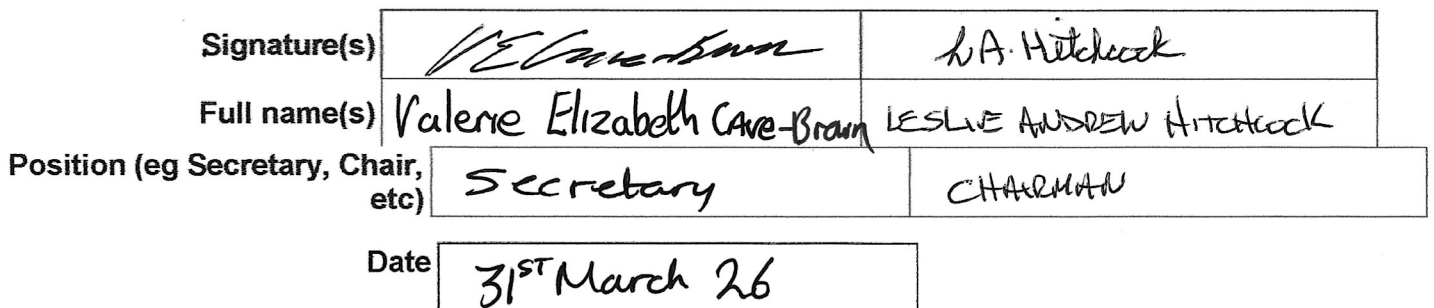 Signature(s) VE Cave-Brown L.A. Hitchcock
Full name(s) Valerie Elizabeth Cave-Brown LESLIE ANDREW HITCHCOCK
Position (eg Secretary, Chair,
etc) Secretary CHAIRMAN
Date 31ST March 26